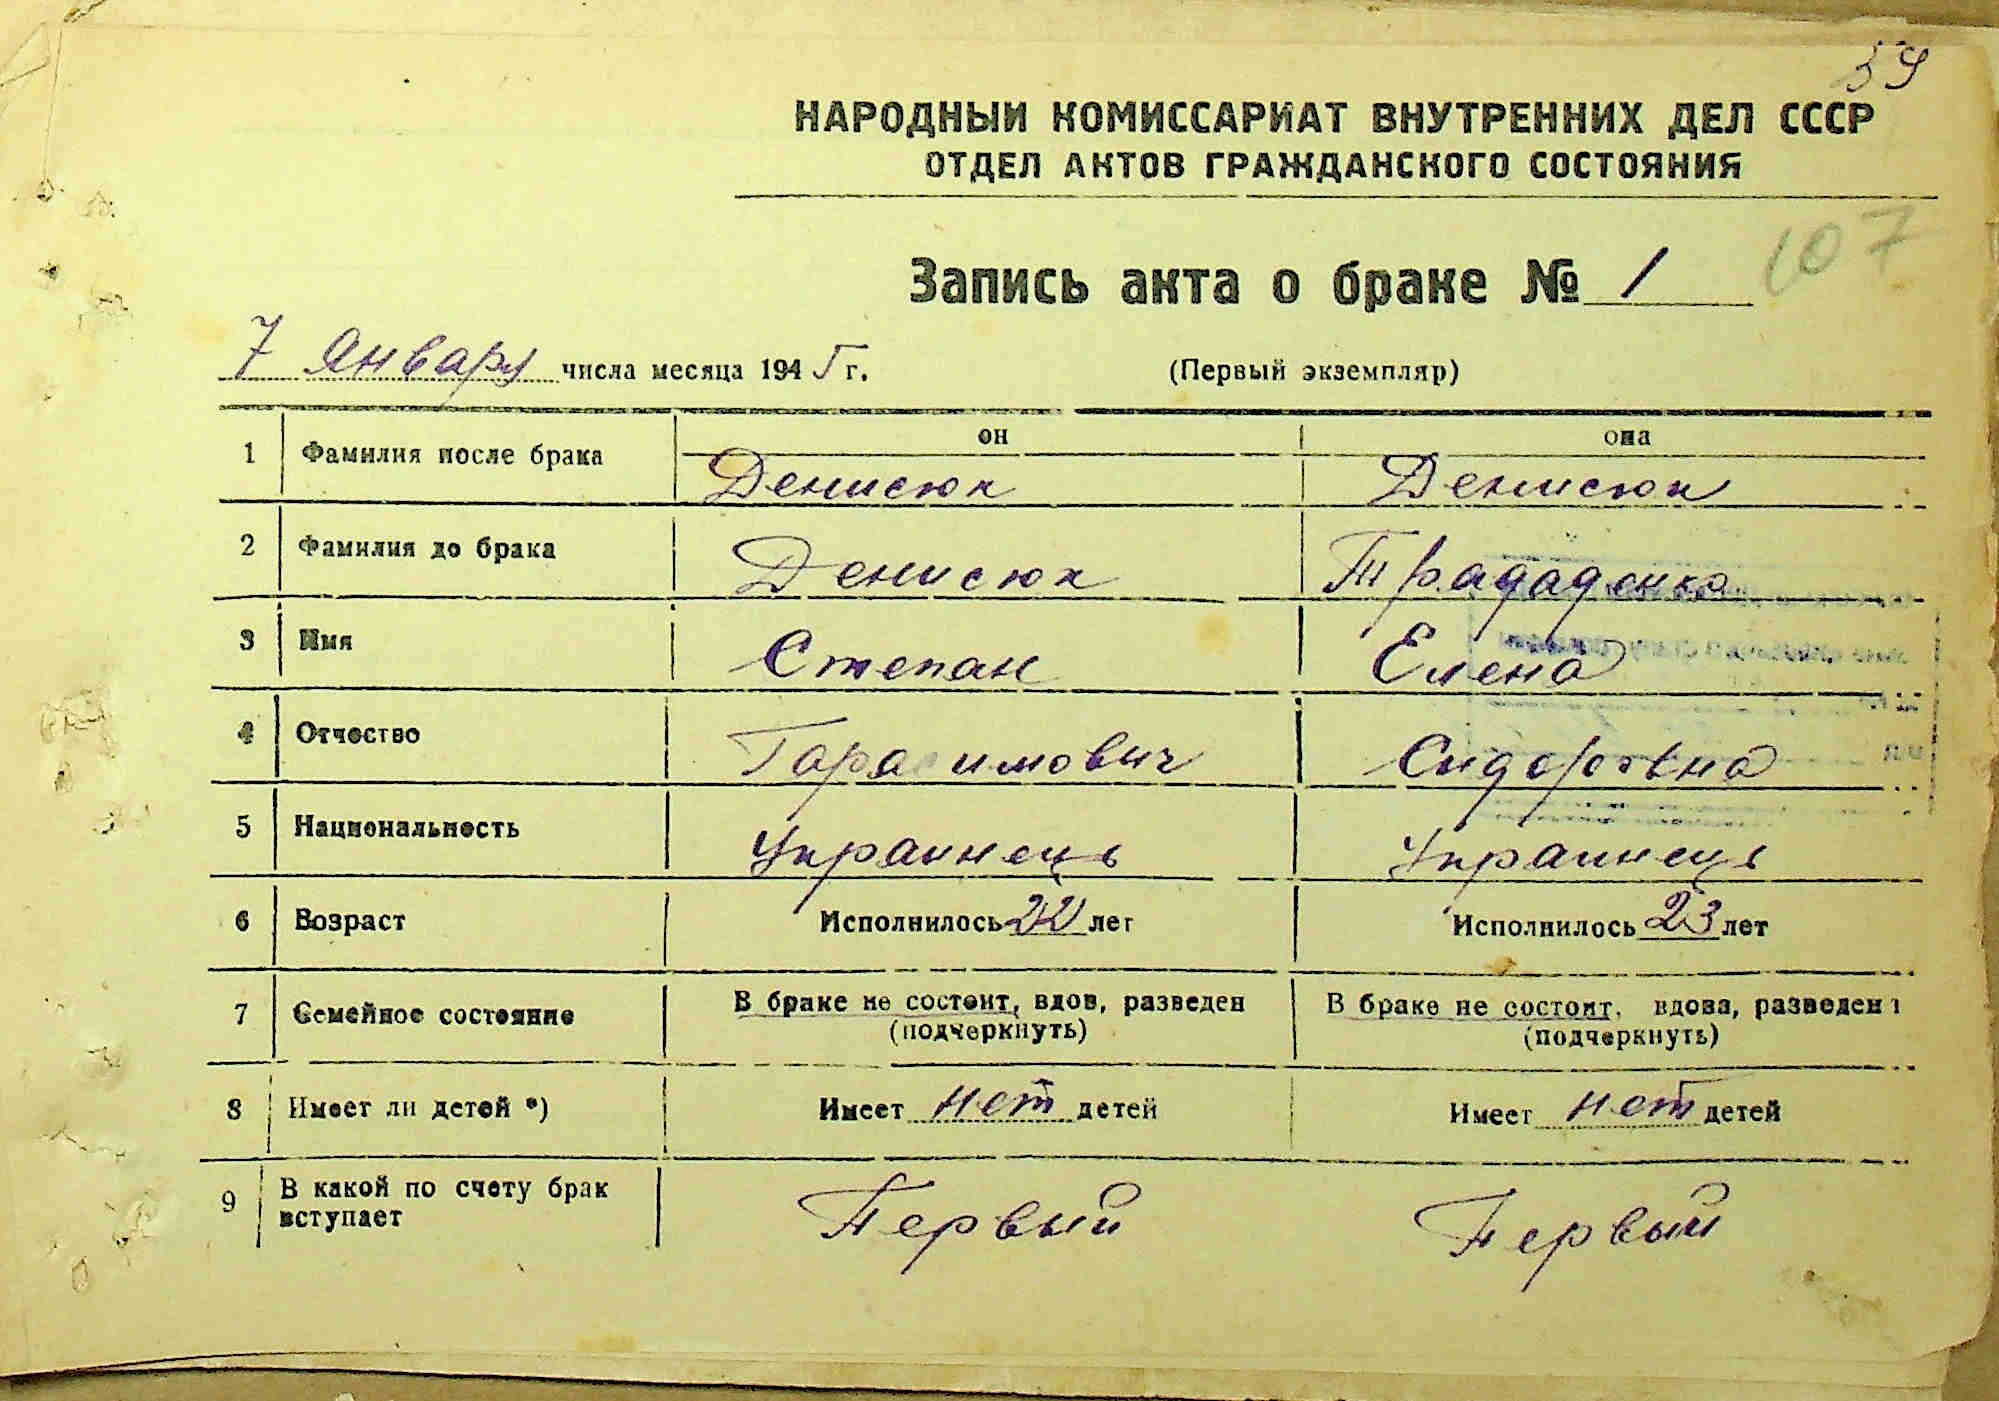 59
НАРОДНЫЙ КОМИССАРИАТ ВНУТРЕННИХ ДЕЛ СССР
ОТДЕЛ АКТОВ ГРАЖДАНСКОГО СОСТОЯНИЯ
Запись акта о браке № 1
107
7 Января числа месяца 1945 г. (Первый экземпляр)
он она
1 Фамилия после брака Денисюк Денисюк
2 Фамилия до брака Денисюк
3 Имя Степан Елена
4 Отчество Гарасимович Сидоровна
5 Национальность Украинець Украинець
6 Возраст Исполнилось 22 лет Исполнилось 23 лет
7 Семейное состояние В браке не состоит, вдов, разведен В браке не состоит, вдова, разведен
(подчеркнуть) (подчеркнуть)
8 Имеет ли детей *) Имеет нет детей Имеет нет детей
9 В какой по счету брак
вступает Первый Первый